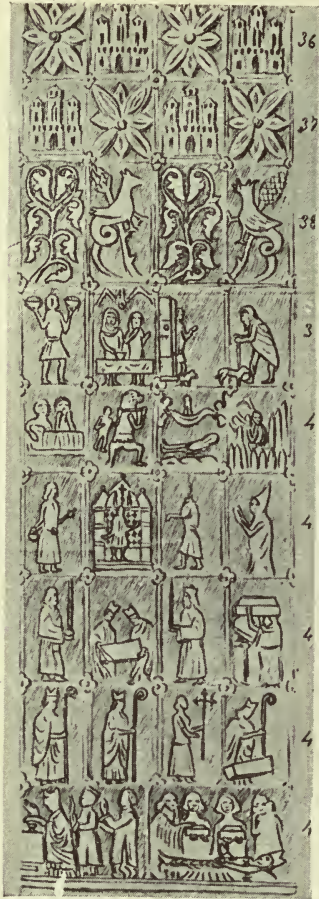 36
37
38
3
4
4
4
4